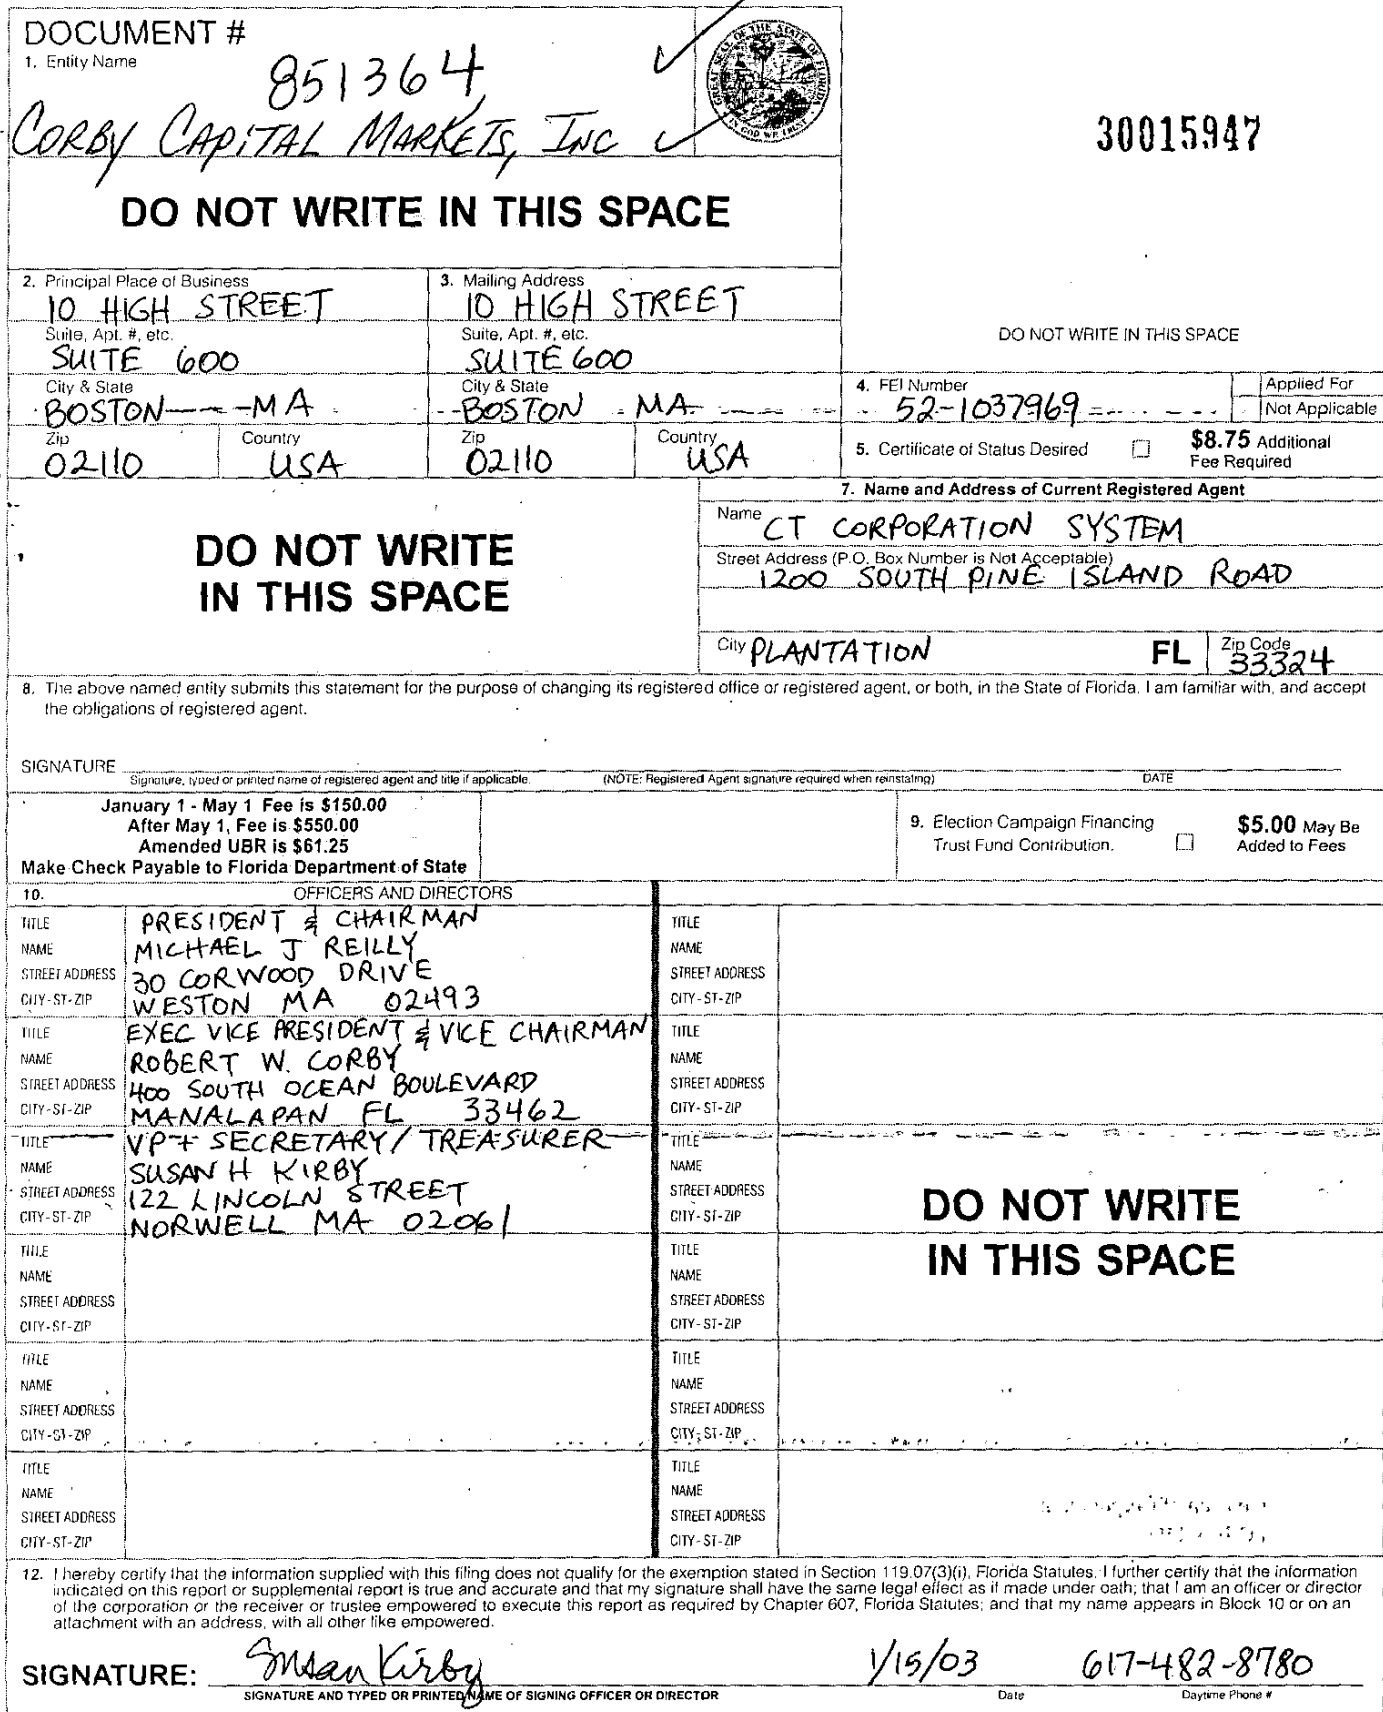 DOCUMENT #
1. Entity Name
851364
CORBY CAPITAL MARKETS, INC
GREAT SEAL OF THE STATE OF FLORIDA
IN GOD WE TRUST
30015947
DO NOT WRITE IN THIS SPACE
2. Principal Place of Business
10 HIGH STREET
Suite, Apt. #, etc.
SUITE 600
City & State
BOSTON MA
Zip
02110
Country
USA
3. Mailing Address
10 HIGH STREET
Suite, Apt. #, etc.
SUITE 600
City & State
BOSTON MA
Zip
02110
Country
USA
DO NOT WRITE IN THIS SPACE
4. FEI Number
52-1037969
Applied For
Not Applicable
5. Certificate of Status Desired
$8.75 Additional
Fee Required
DO NOT WRITE
IN THIS SPACE
7. Name and Address of Current Registered Agent
Name CT CORPORATION SYSTEM
Street Address (P.O. Box Number is Not Acceptable)
1200 SOUTH PINE ISLAND ROAD
City PLANTATION FL Zip Code 33324
8. The above named entity submits this statement for the purpose of changing its registered office or registered agent, or both, in the State of Florida. I am familiar with, and accept
the obligations of registered agent.
SIGNATURE
Signature, typed or printed name of registered agent and title if applicable. (NOTE: Registered Agent signature required when reinstating) DATE
January 1 - May 1 Fee is $150.00
After May 1, Fee is $550.00
Amended UBR is $61.25
Make Check Payable to Florida Department of State
9. Election Campaign Financing
Trust Fund Contribution.
$5.00 May Be
Added to Fees
10. OFFICERS AND DIRECTORS
TITLE PRESIDENT & CHAIRMAN
NAME MICHAEL J REILLY
STREET ADDRESS 30 CORWOOD DRIVE
CITY-ST-ZIP WESTON MA 02493
TITLE EXEC VICE PRESIDENT & VICE CHAIRMAN
NAME ROBERT W. CORBY
STREET ADDRESS 400 SOUTH OCEAN BOULEVARD
CITY-ST-ZIP MANALAPAN FL 33462
TITLE VP + SECRETARY/TREASURER
NAME SUSAN H KIRBY
STREET ADDRESS 122 LINCOLN STREET
CITY-ST-ZIP NORWELL MA 02061
TITLE
NAME
STREET ADDRESS
CITY-ST-ZIP
TITLE
NAME
STREET ADDRESS
CITY-ST-ZIP
TITLE
NAME
STREET ADDRESS
CITY-ST-ZIP
TITLE
NAME
STREET ADDRESS
CITY-ST-ZIP
TITLE
NAME
STREET ADDRESS
CITY-ST-ZIP
TITLE
NAME
STREET ADDRESS
CITY-ST-ZIP
TITLE
NAME
STREET ADDRESS
CITY-ST-ZIP
TITLE
NAME
STREET ADDRESS
CITY-ST-ZIP
TITLE
NAME
STREET ADDRESS
CITY-ST-ZIP
DO NOT WRITE
IN THIS SPACE
12. I hereby certify that the information supplied with this filing does not qualify for the exemption stated in Section 119.07(3)(i), Florida Statutes. I further certify that the information
indicated on this report or supplemental report is true and accurate and that my signature shall have the same legal effect as if made under oath; that I am an officer or director
of the corporation or the receiver or trustee empowered to execute this report as required by Chapter 607, Florida Statutes; and that my name appears in Block 10 or on an
attachment with an address, with all other like empowered.
SIGNATURE: Susan Kirby 1/15/03 617-482-8780
SIGNATURE AND TYPED OR PRINTED NAME OF SIGNING OFFICER OR DIRECTOR Date Daytime Phone #